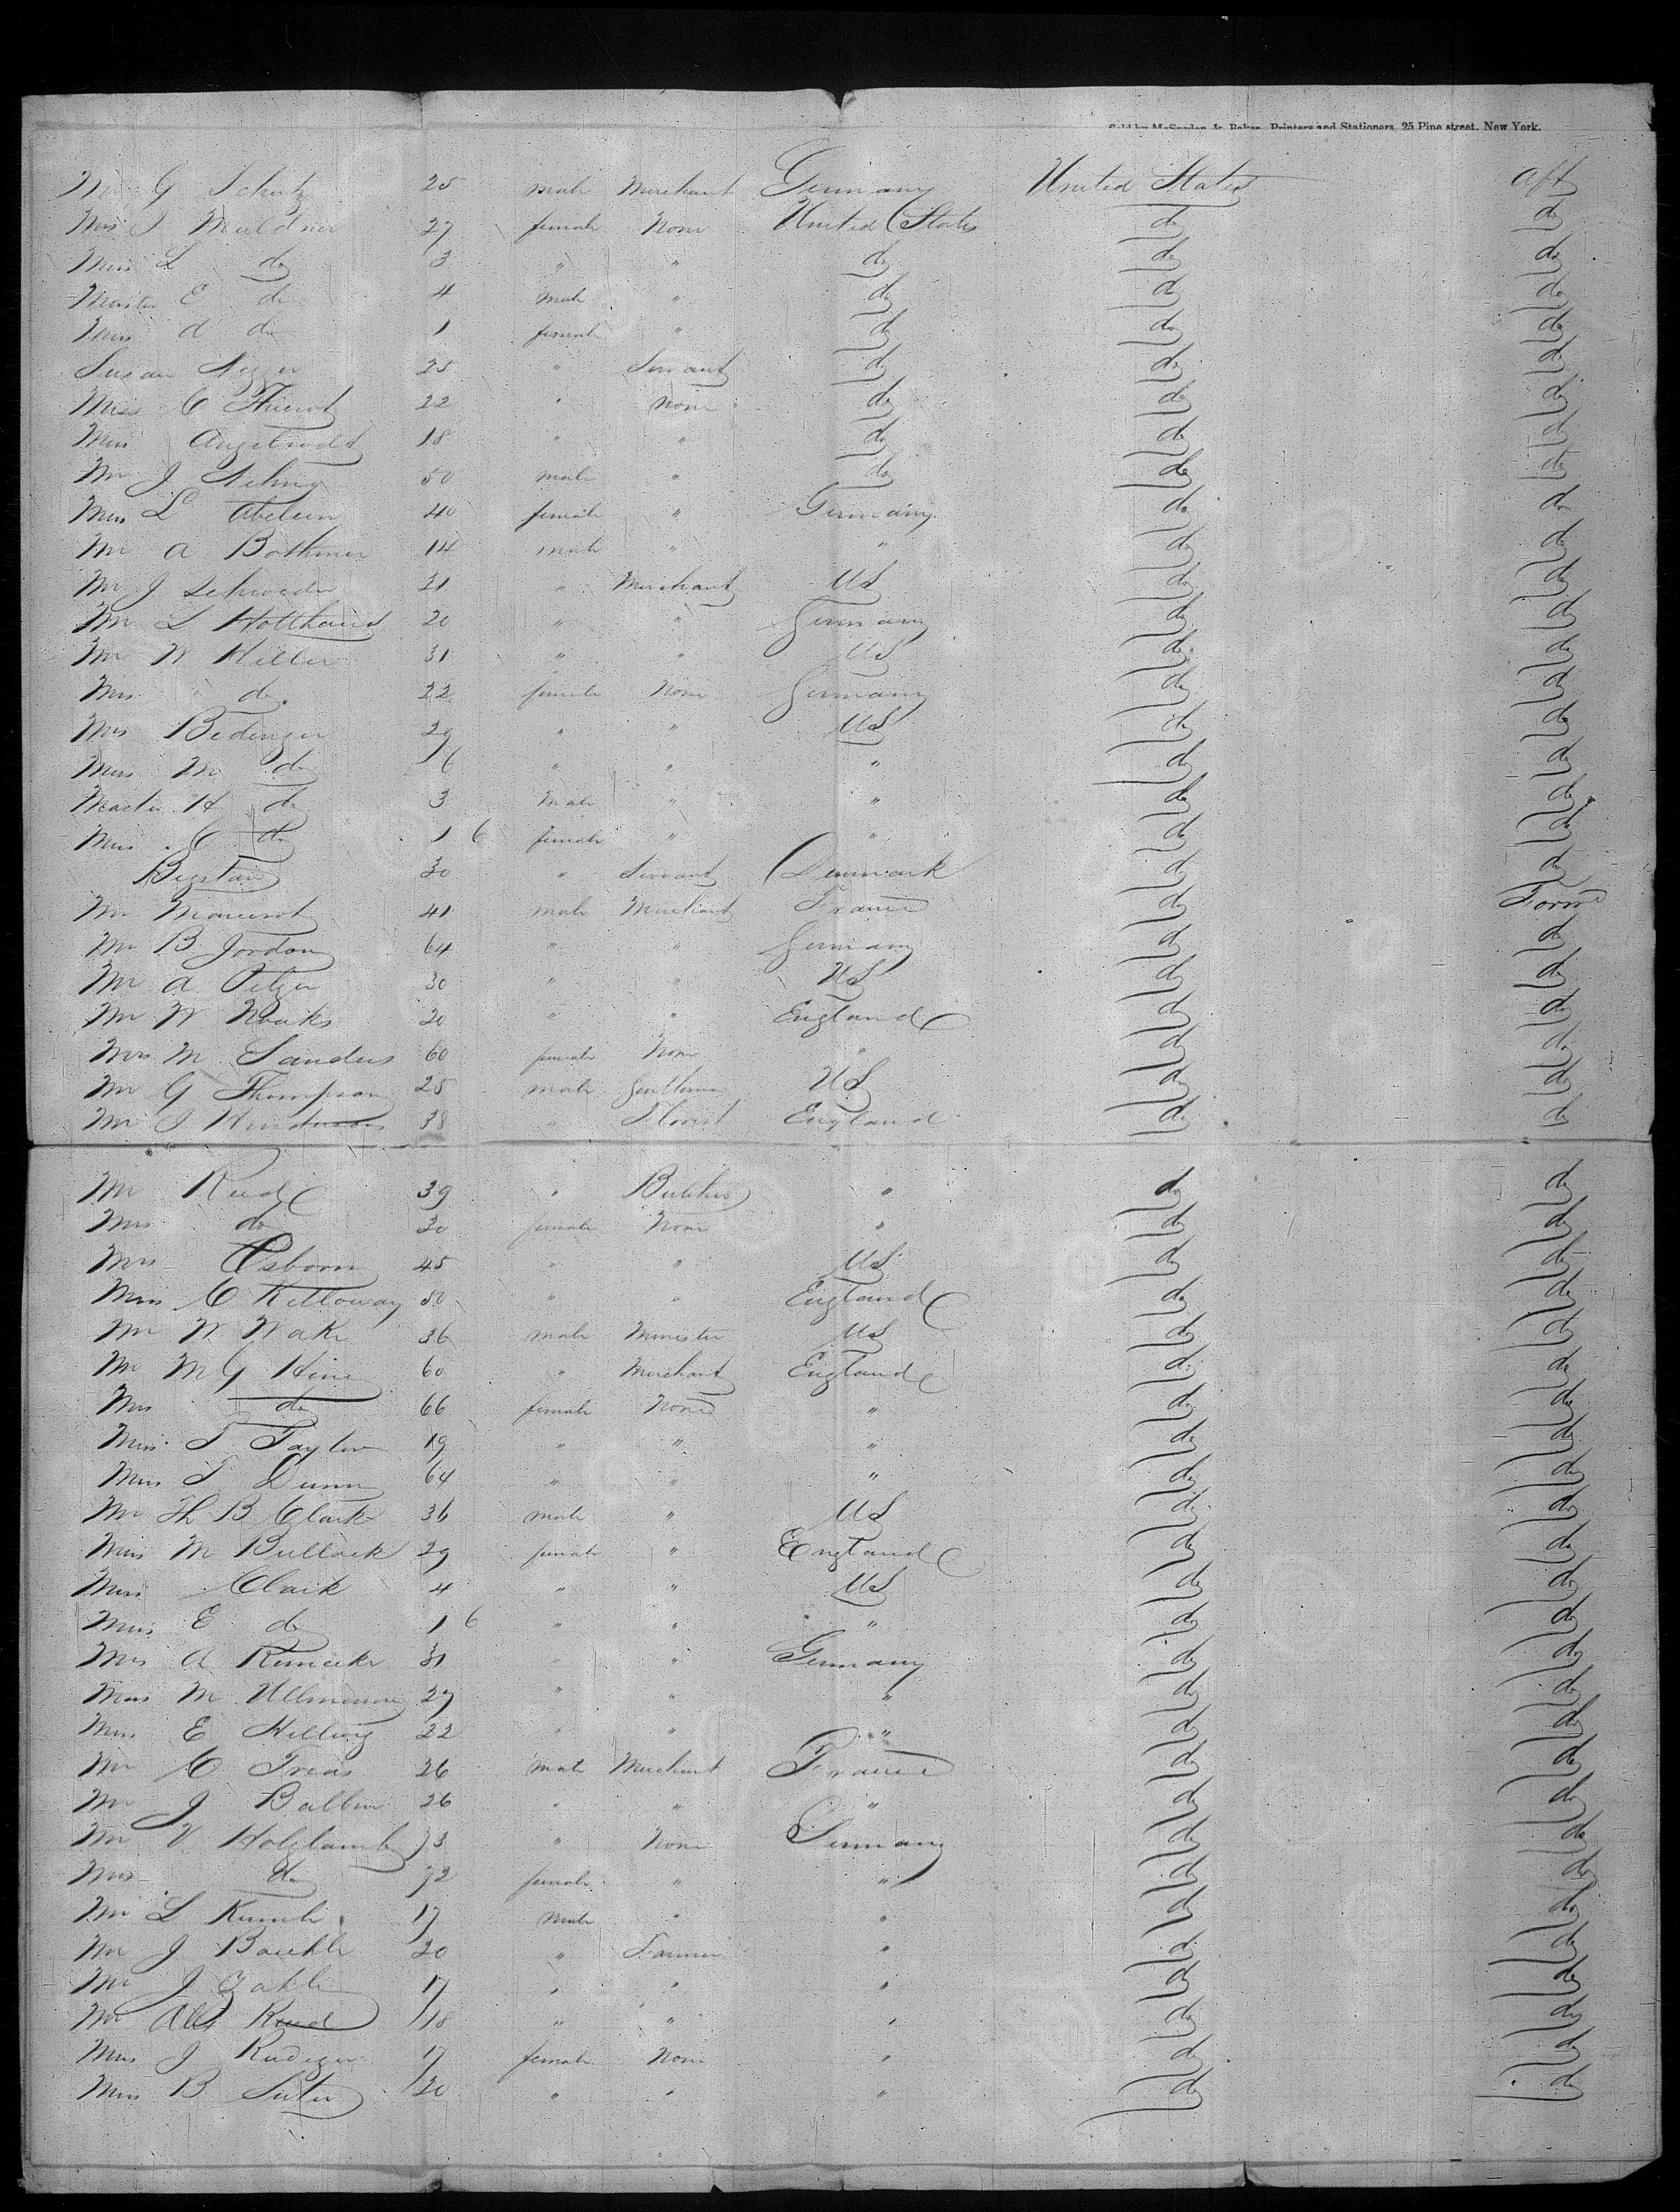 Sold by McSpedon & Baker, Printers and Stationers, 25 Pine street, New York.
Mr G Schutz 25 male Merchant Germany United States aft
Mrs J Muldner 27 female None United States do do
Miss L do 3 " " do do do
Master E do 4 male " do do do
Miss A do 1 female " do do do
Susan 25 " Servant do do do
Miss C Thierot 22 " None do do do
Miss Angelrodt 18 " " do do do
Mr J 50 male " do do do
Mrs L Abeleen 40 female " Germany do do
Mr A Bothmer 14 male " " do do
Mr J Schroeder 21 " Merchant US do do
Mr L Holthaus 20 " " Germany do do
Mr W Heller 31 " " US do do
Mrs do 22 female None Germany do do
Mrs Bedinger 29 " " US do do
Miss M do 6 " " " do do
Master H do 3 male " " do do
Miss C do 1 6 female " " do do
30 " Servant Denmark do do
Mr 41 male Merchant France do Forwd
Mr B Jordon 64 " " Germany do do
Mr A Pelzer 30 " " US do do
Mr W Noaks 20 " " England do do
Mrs M Sanders 60 female None " do do
Mr G Thompson 25 male Gentleman US do do
Mr J Henderson 38 " Florist England do do
Mr Reed 39 " Butcher " do do
Mrs do 30 female None " do do
Mrs Osborn 45 " " US do do
Mrs C Kelloway 50 " " England do do
Mr W Wake 36 male Minister US do do
Mr M G Hine 60 " Merchant England do do
Mrs do 66 female None " do do
Miss T Taylor 19 " " " do do
Mrs T Dunn 64 " " " do do
Mr Th B Clark 36 male " US do do
Miss M Bullock 29 female " England do do
Miss Clark 4 " " US do do
Miss E do 1 6 " " " do do
Mrs A Reinecke 31 " " Germany do do
Miss M Ullmann 27 " " " do do
Miss E Hellwig 22 " " " do do
Mr C Freas 26 male Merchant France do do
Mr J Balbin 26 " " " do do
Mr V Holzlamb 73 " None Germany do do
Mrs do 72 female " " do do
Mr L Kumli 17 male " " do do
Mr J Baechle 20 " Farmer " do do
Mr J Zahle 17 " " " do do
Mr Alb Rued 18 " " " do do
Miss J Rudiger 17 female None " do do
Miss B Suter 20 " " " do do